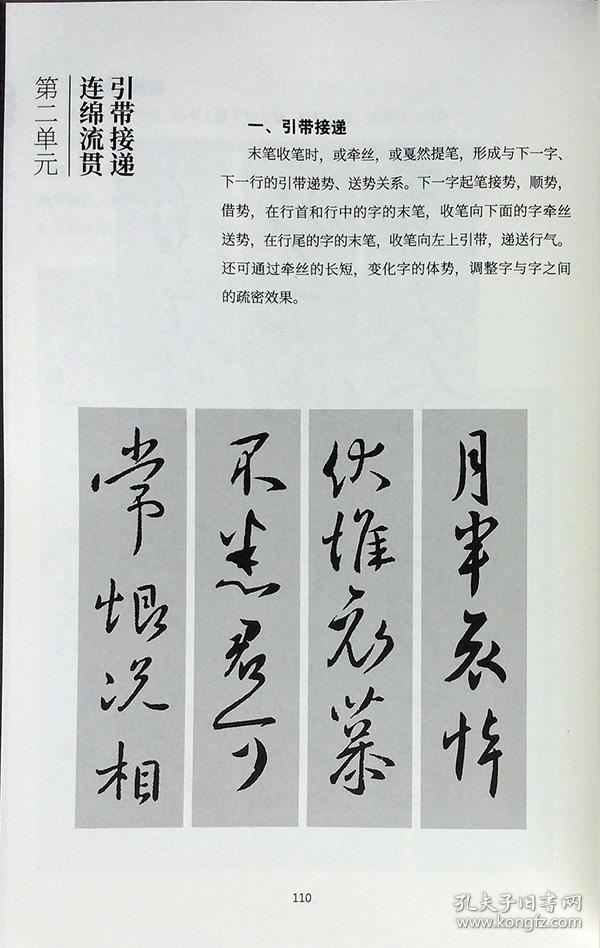 第二单元
引带接递
连绵流贯
一、引带接递
末笔收笔时，或牵丝，或戛然提笔，形成与下一字、
下一行的引带递势、送势关系。下一字起笔接势，顺势，
借势，在行首和行中的字的末笔，收笔向下面的字牵丝
送势，在行尾的字的末笔，收笔向左上引带，递送行气。
还可通过牵丝的长短，变化字的体势，调整字与字之间
的疏密效果。
月半哀悼
伏惟慕
不悉君可
常恨况相
110
孔夫子旧书网
www.kongfz.com